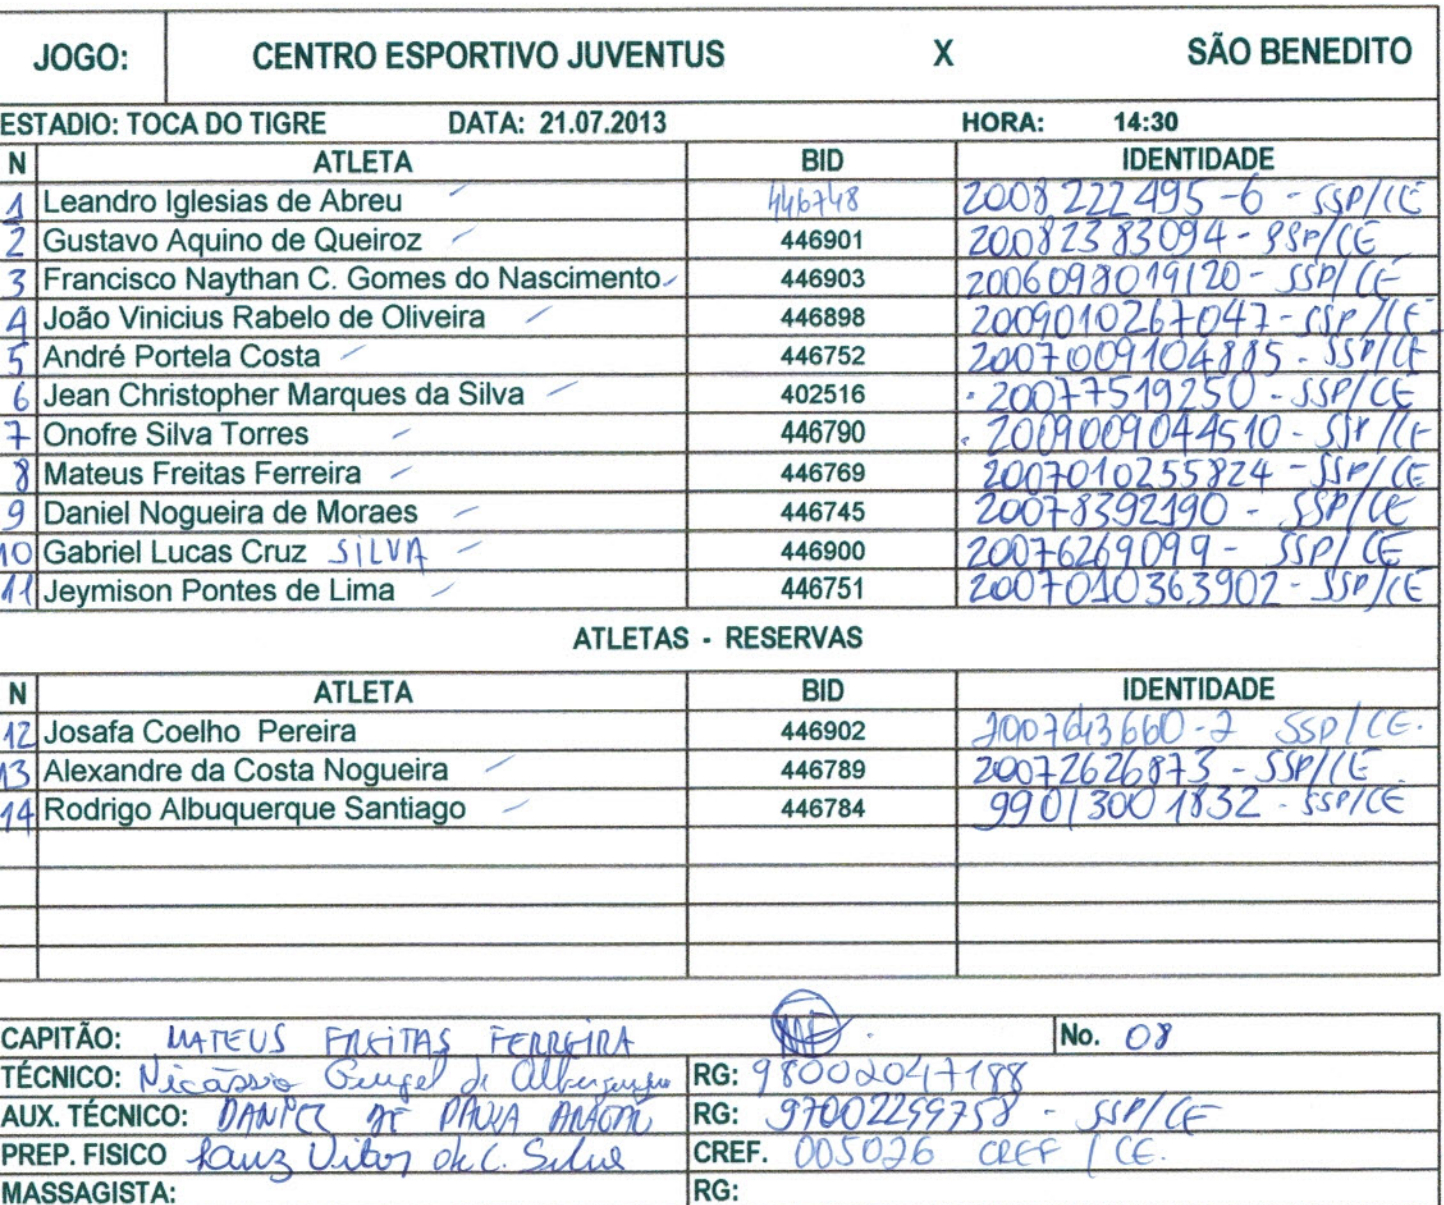 JOGO: CENTRO ESPORTIVO JUVENTUS X SÃO BENEDITO
ESTADIO: TOCA DO TIGRE DATA: 21.07.2013 HORA: 14:30
N ATLETA BID IDENTIDADE
1 Leandro Iglesias de Abreu 446748 2008222495-6 - SSP/CE
2 Gustavo Aquino de Queiroz 446901 20082383094 - SSP/CE
3 Francisco Naythan C. Gomes do Nascimento 446903 2006098019120 - SSP/CE
4 João Vinicius Rabelo de Oliveira 446898 2009010267047 - SSP/CE
5 André Portela Costa 446752 20070009104885 - SSP/CE
6 Jean Christopher Marques da Silva 402516 20077519250 - SSP/CE
7 Onofre Silva Torres 446790 2009009044510 - SSP/CE
8 Mateus Freitas Ferreira 446769 2007010255824 - SSP/CE
9 Daniel Nogueira de Moraes 446745 20078392190 - SSP/CE
10 Gabriel Lucas Cruz SILVA 446900 20076269099 - SSP/CE
11 Jeymison Pontes de Lima 446751 2007010363902 - SSP/CE
ATLETAS - RESERVAS
N ATLETA BID IDENTIDADE
12 Josafa Coelho Pereira 446902 SSP/CE.
13 Alexandre da Costa Nogueira 446789 20072626873 - SSP/CE
14 Rodrigo Albuquerque Santiago 446784 99013001832 - SSP/CE
CAPITÃO: MATEUS FREITAS FERREIRA No. 08
TÉCNICO: Nicássio de Albuquerque RG: 98002047188
AUX. TÉCNICO: DANIEL DE PAULA RG: 97002299758 - SSP/CE
PREP. FISICO Vitor de C. Silva CREF. 005026 CREF / CE.
MASSAGISTA: RG: